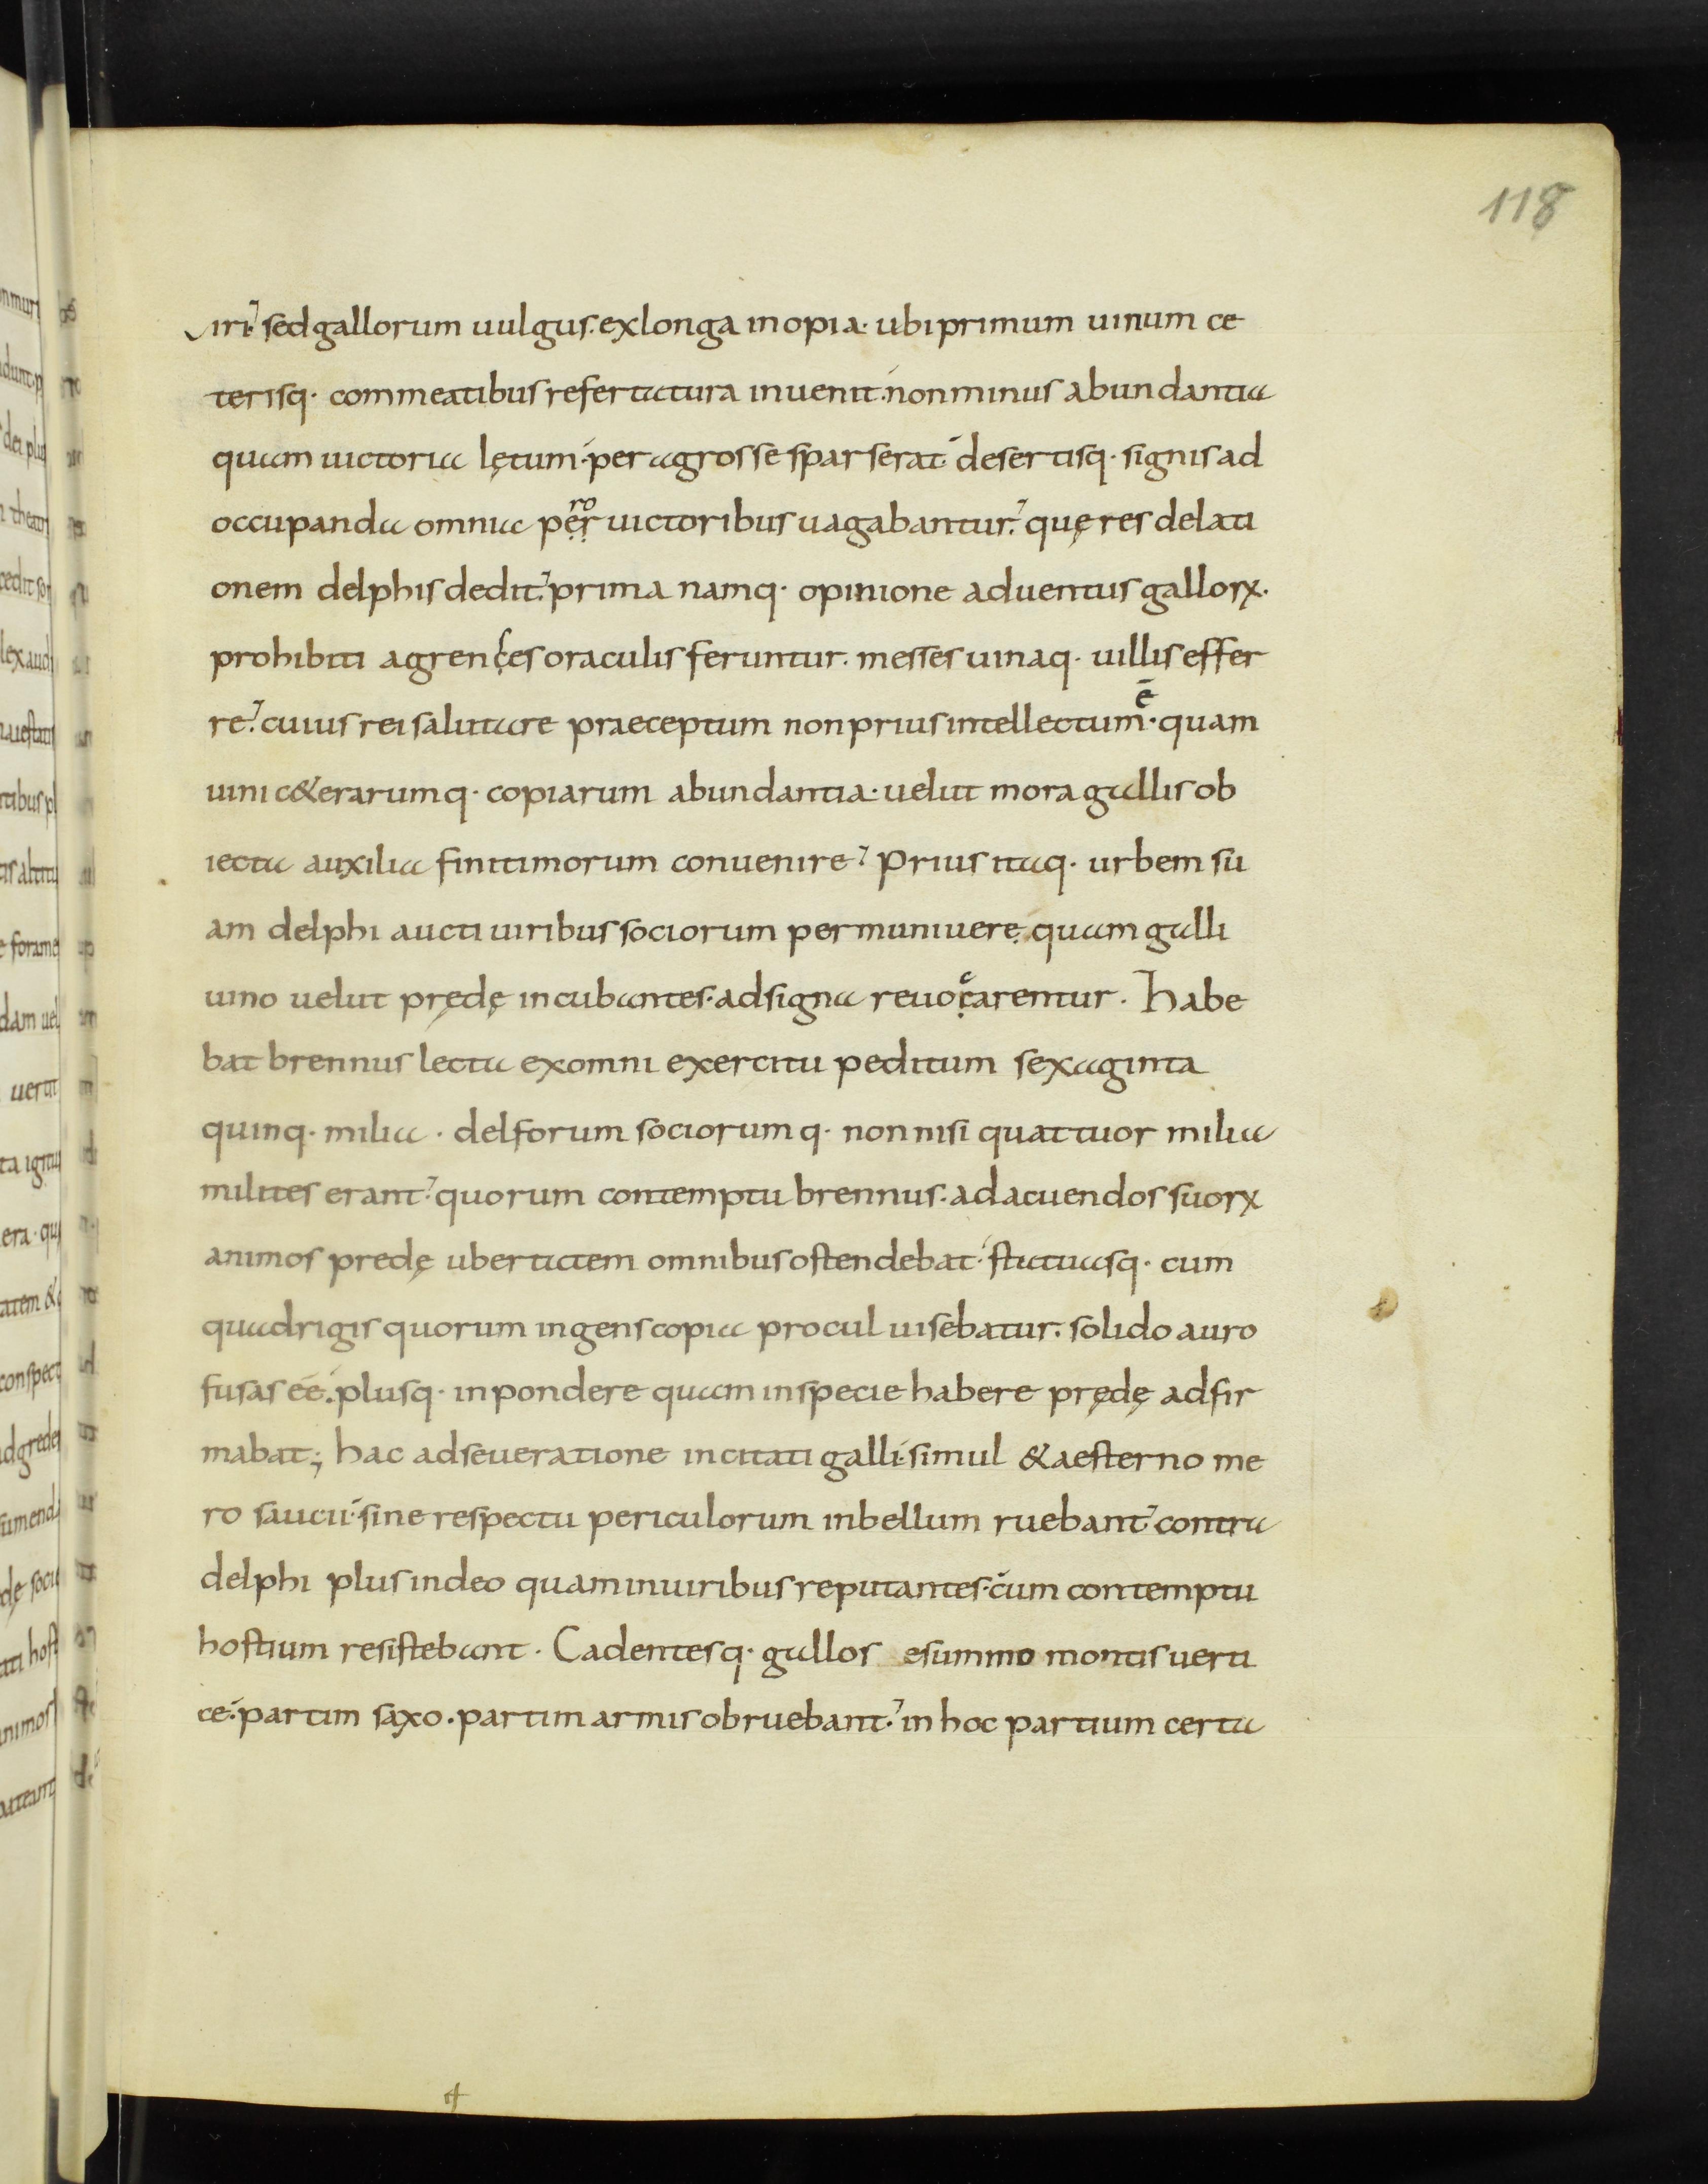 118
uiri. sed gallorum uulgus. ex longa inopia. ubi primum uinum ce
terisq· commeatibus referta rura inuenit. non minus abundantia
quam uictoria lętum. per agros se sparserat. desertisq· signis ad
occupanda omnia pro uictoribus uagabantur. quę res delati
onem delphis dedit. prima namq· opinione aduentus gallorꝝ.
prohibiti agrenſes oraculis feruntur. messes uinaq· uillis effer
re. cuius rei salutare praeceptum non prius intellectum ē· quam
uini c&erarumq· copiarum abundantia. uelut mora gallis ob
iecta auxilia finitimorum conuenire. Prius itaq· urbem su
am delphi aucti uiribus sociorum permuniuere. quam galli
uino uelut prędę incubantes. ad signa reuocarentur. Habe
bat brennus lecta ex omni exercitu peditum sexaginta
quinq· milia. delforum sociorumq· non nisi quattuor milia
milites erant. quorum contemptu brennus. ad acuendos suorꝝ
animos predę ubertatem omnibus ostendebat. statuasq· cum
quadrigis quorum ingens copia procul uisebatur. solido auro
fusas ēē. plusq· in pondere quam in specie habere prędę adfir
mabat; hac adseueratione incitati galli. simul & aesterno me
ro saucii. sine respectu periculorum in bellum ruebant. contra
delphi plus in deo quam in uiribus reputantes. cum contemptu
hostium resistebant. Cadentesq· gallos e summo montis uerti
ce. partim saxo. partim armis obruebant. in hoc partium certa